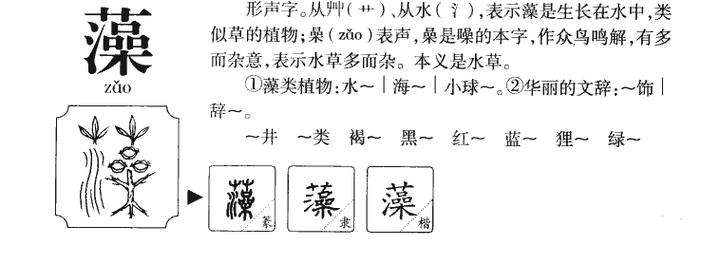 藻
zǎo
形声字。从艸(艹)、从水(氵),表示藻是生长在水中,类
似草的植物;喿(zǎo)表声,喿是噪的本字,作众鸟鸣解,有多
而杂意,表示水草多而杂。本义是水草。
①藻类植物:水~|海~|小球~。②华丽的文辞:~饰|
辞~。
~井 ~类 褐~ 黑~ 红~ 蓝~ 狸~ 绿~
藻 篆
藻 隶
藻 楷